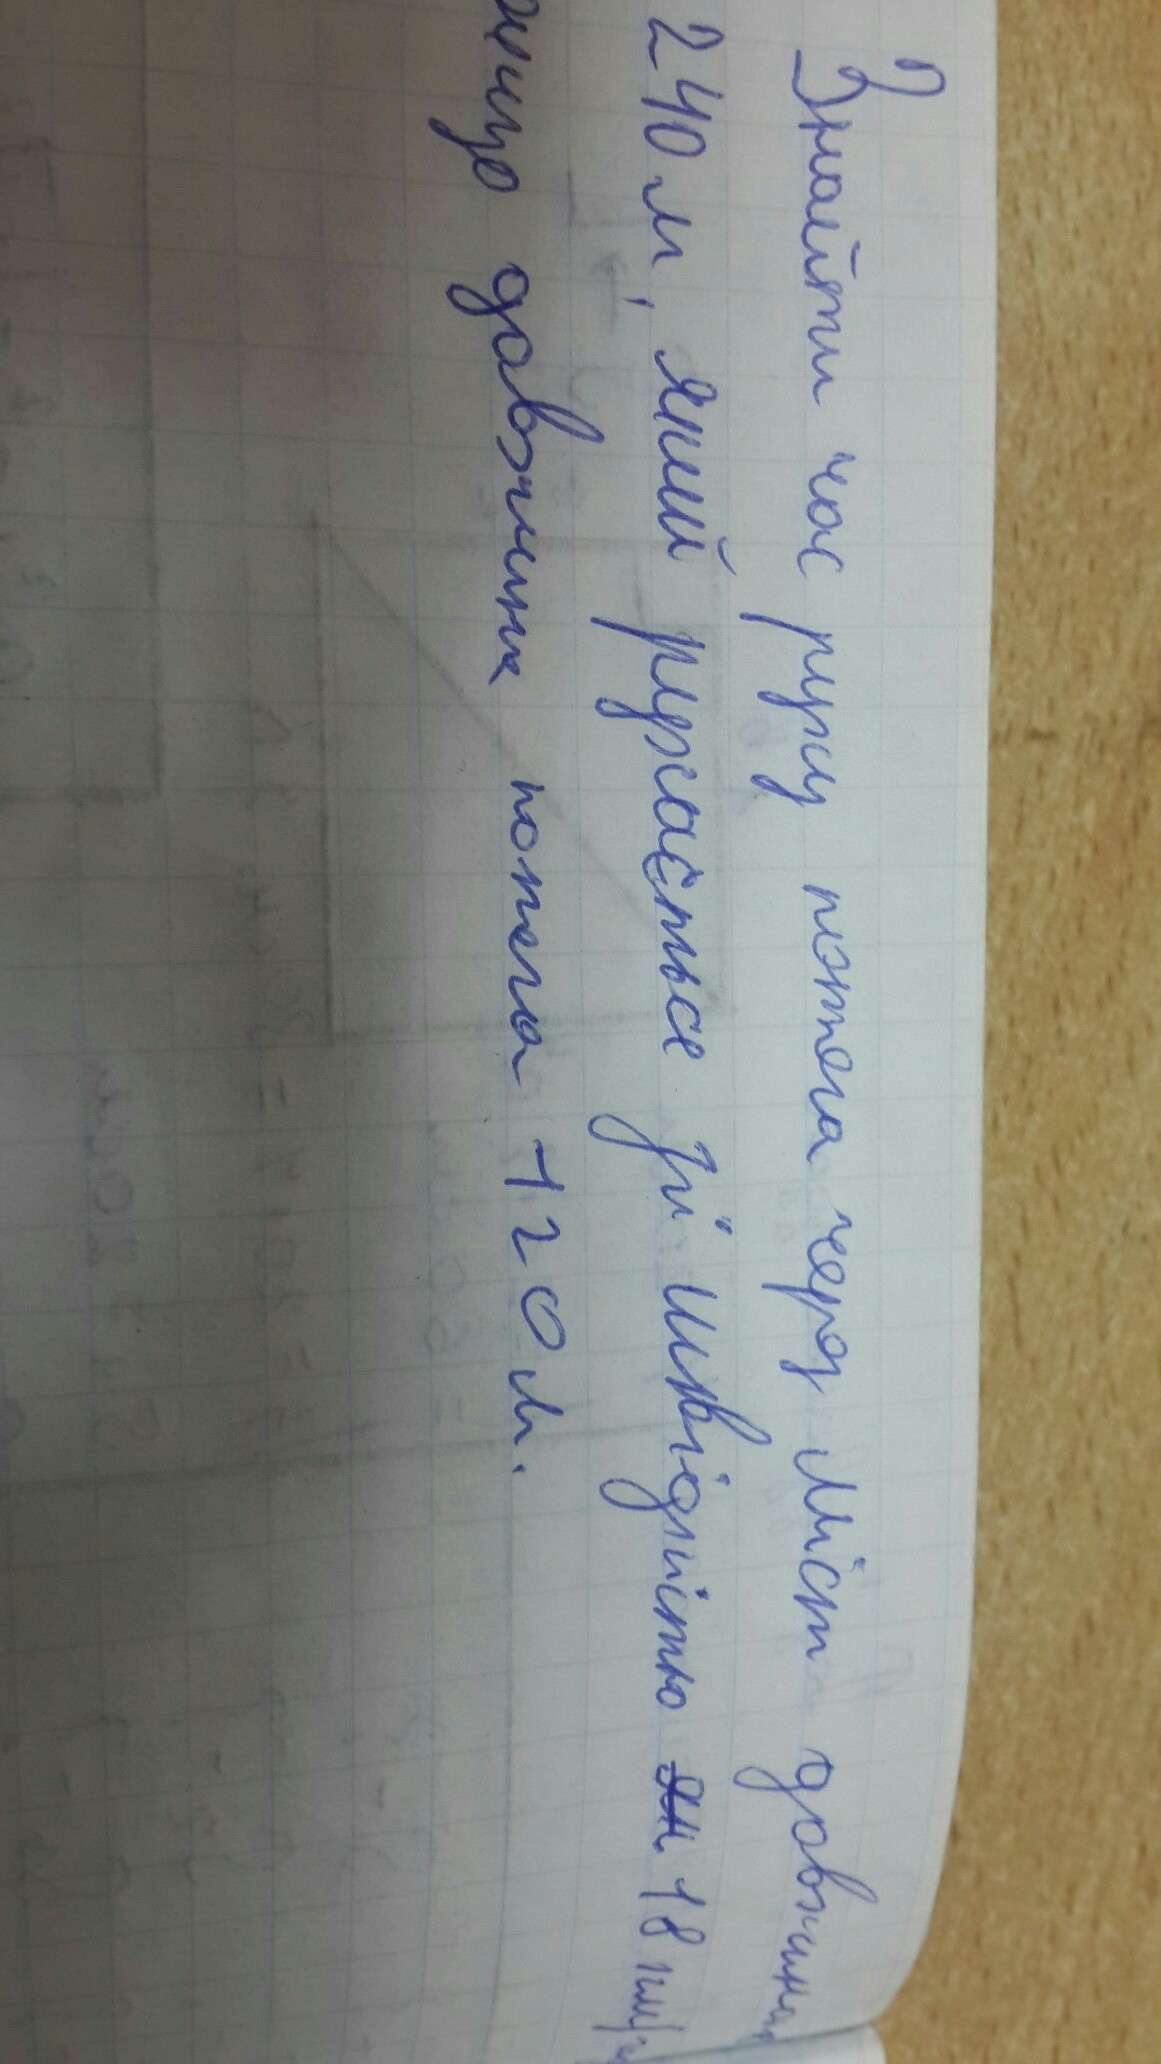 Знайти час руху потяга через міст довжиною
240 м, який рухається зі швидкістю 18 км/г
якщо довжина потяга 120 м.